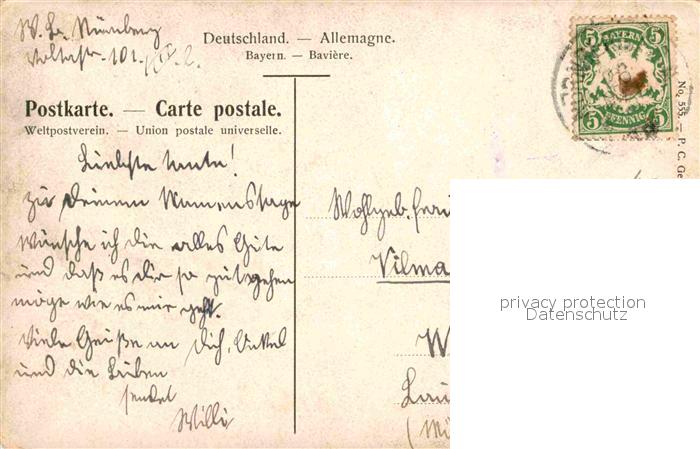 W. Nürnberg
101
Deutschland. — Allemagne.
Bayern. — Bavière.
BAYERN
5 5
5 PFENNIG 5
No. 555. — P. C. Ge
Postkarte. — Carte postale.
Weltpostverein. — Union postale universelle.
Liebste Tante!
Zu Deinem Namenstage
wünsche ich Dir alles Gute
und daß es Dir so gut gehen
möge wie es mir geht.
Viele Grüße an Dich, Onkel
und die Buben
sendet
Willi
Wohlgeb. Frau
Vilma
W
privacy protection
Datenschutz